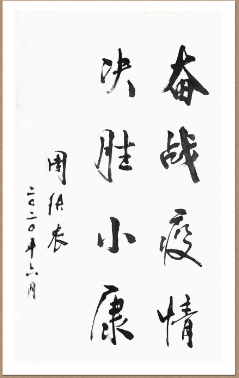 奋战疫情
决胜小康
周洪表
二〇二〇年六月